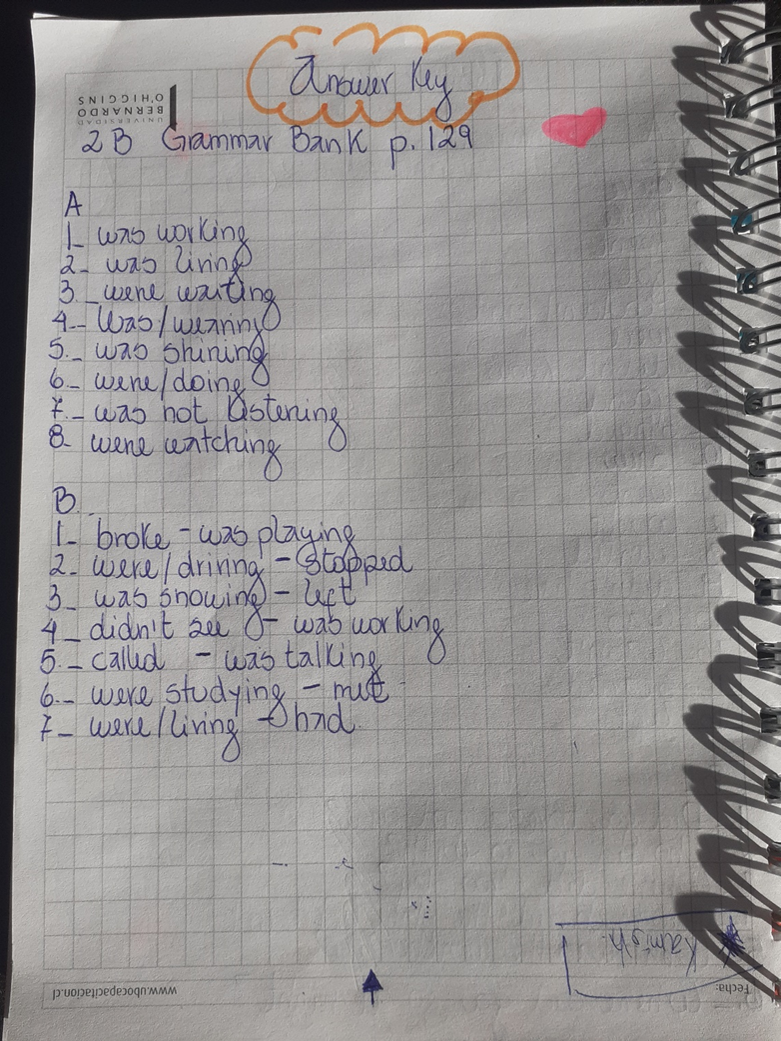 Answer Key
UNIVERSIDAD
BERNARDO
O'HIGGINS
2B Grammar Bank p. 129
A
1_ was working
2_ was living
3_ were waiting
4_ Was/wearing
5._ was shining
6_ were/doing
7._ was not listening
8_ were watching
B
1_ broke - was playing
2_ were/driving - stopped
3_ was snowing - left
4_ didn't see - was working
5._ called - was talking
6._ were studying - met
7_ were/living - had
www.ubocapacitacion.cl
Fecha: